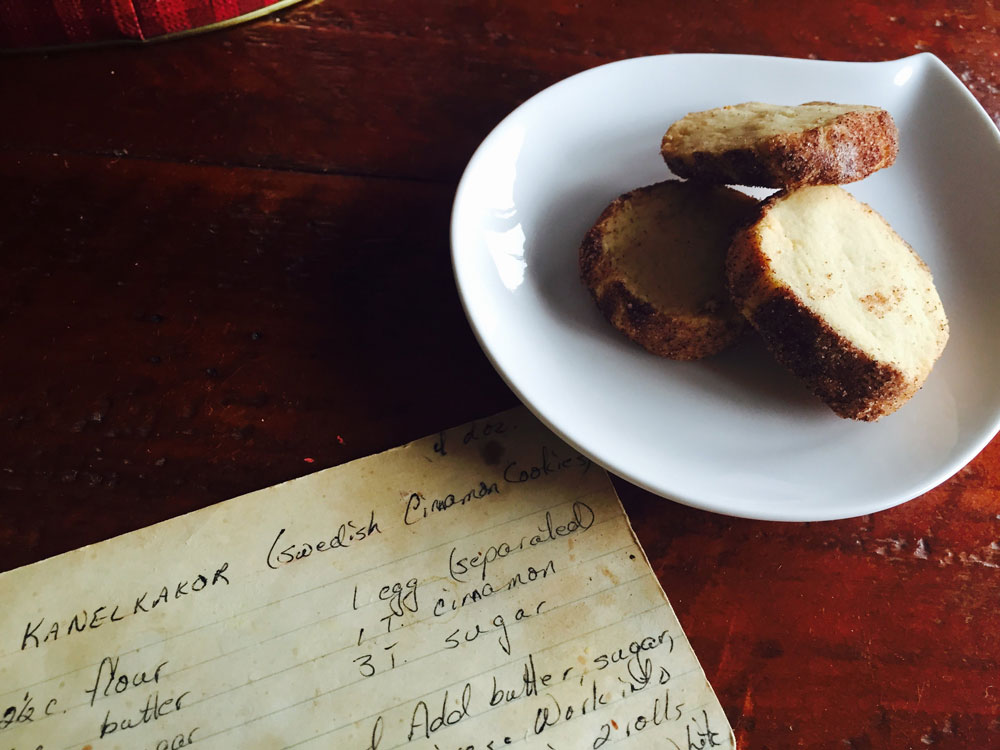 4 doz.
KANELKAKOR (Swedish Cinnamon Cookies)
1 egg (separated)
1 T. cinnamon
3 T. sugar
2½ c. flour
butter
sugar
Add butter, sugar,
Work into
2 rolls